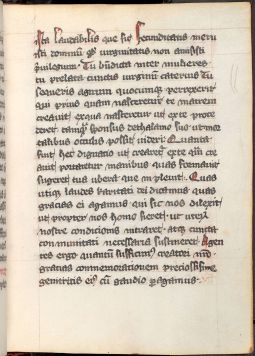 ista laudabilis que sic fecunditatis meru
isti donum qd virginitatis non amisisti
privilegium Tu bndicta inter mulieres
tu prelata cunctis virginu catervis Tu
sequeris agnum quocumqz perrexerit
qui prius quam nasceretur et matrem
creavit ex qua nasceretur ut exte proce
deret tamqz sponsus dethalamo suo ut mor
talibus oculis possit videri Quanta
fuit hec dignatio ut crearet exte qui cre
avit portaretur manibus quas formavit
sugeret tua ubera que implevit Quas
utiqz laudes caritati dei dicamus quas
gracias ei agamus qui sic nos dilexit
ut propter nos homo fieret ut utera
nostre condicionis intraret atqz cuncta
conmunitati necessaria sustineret Agen
tes ergo quantu sufficimus creatori nro
gracias commemorationem preciosissime
genitricis eius cu gaudio peragamus